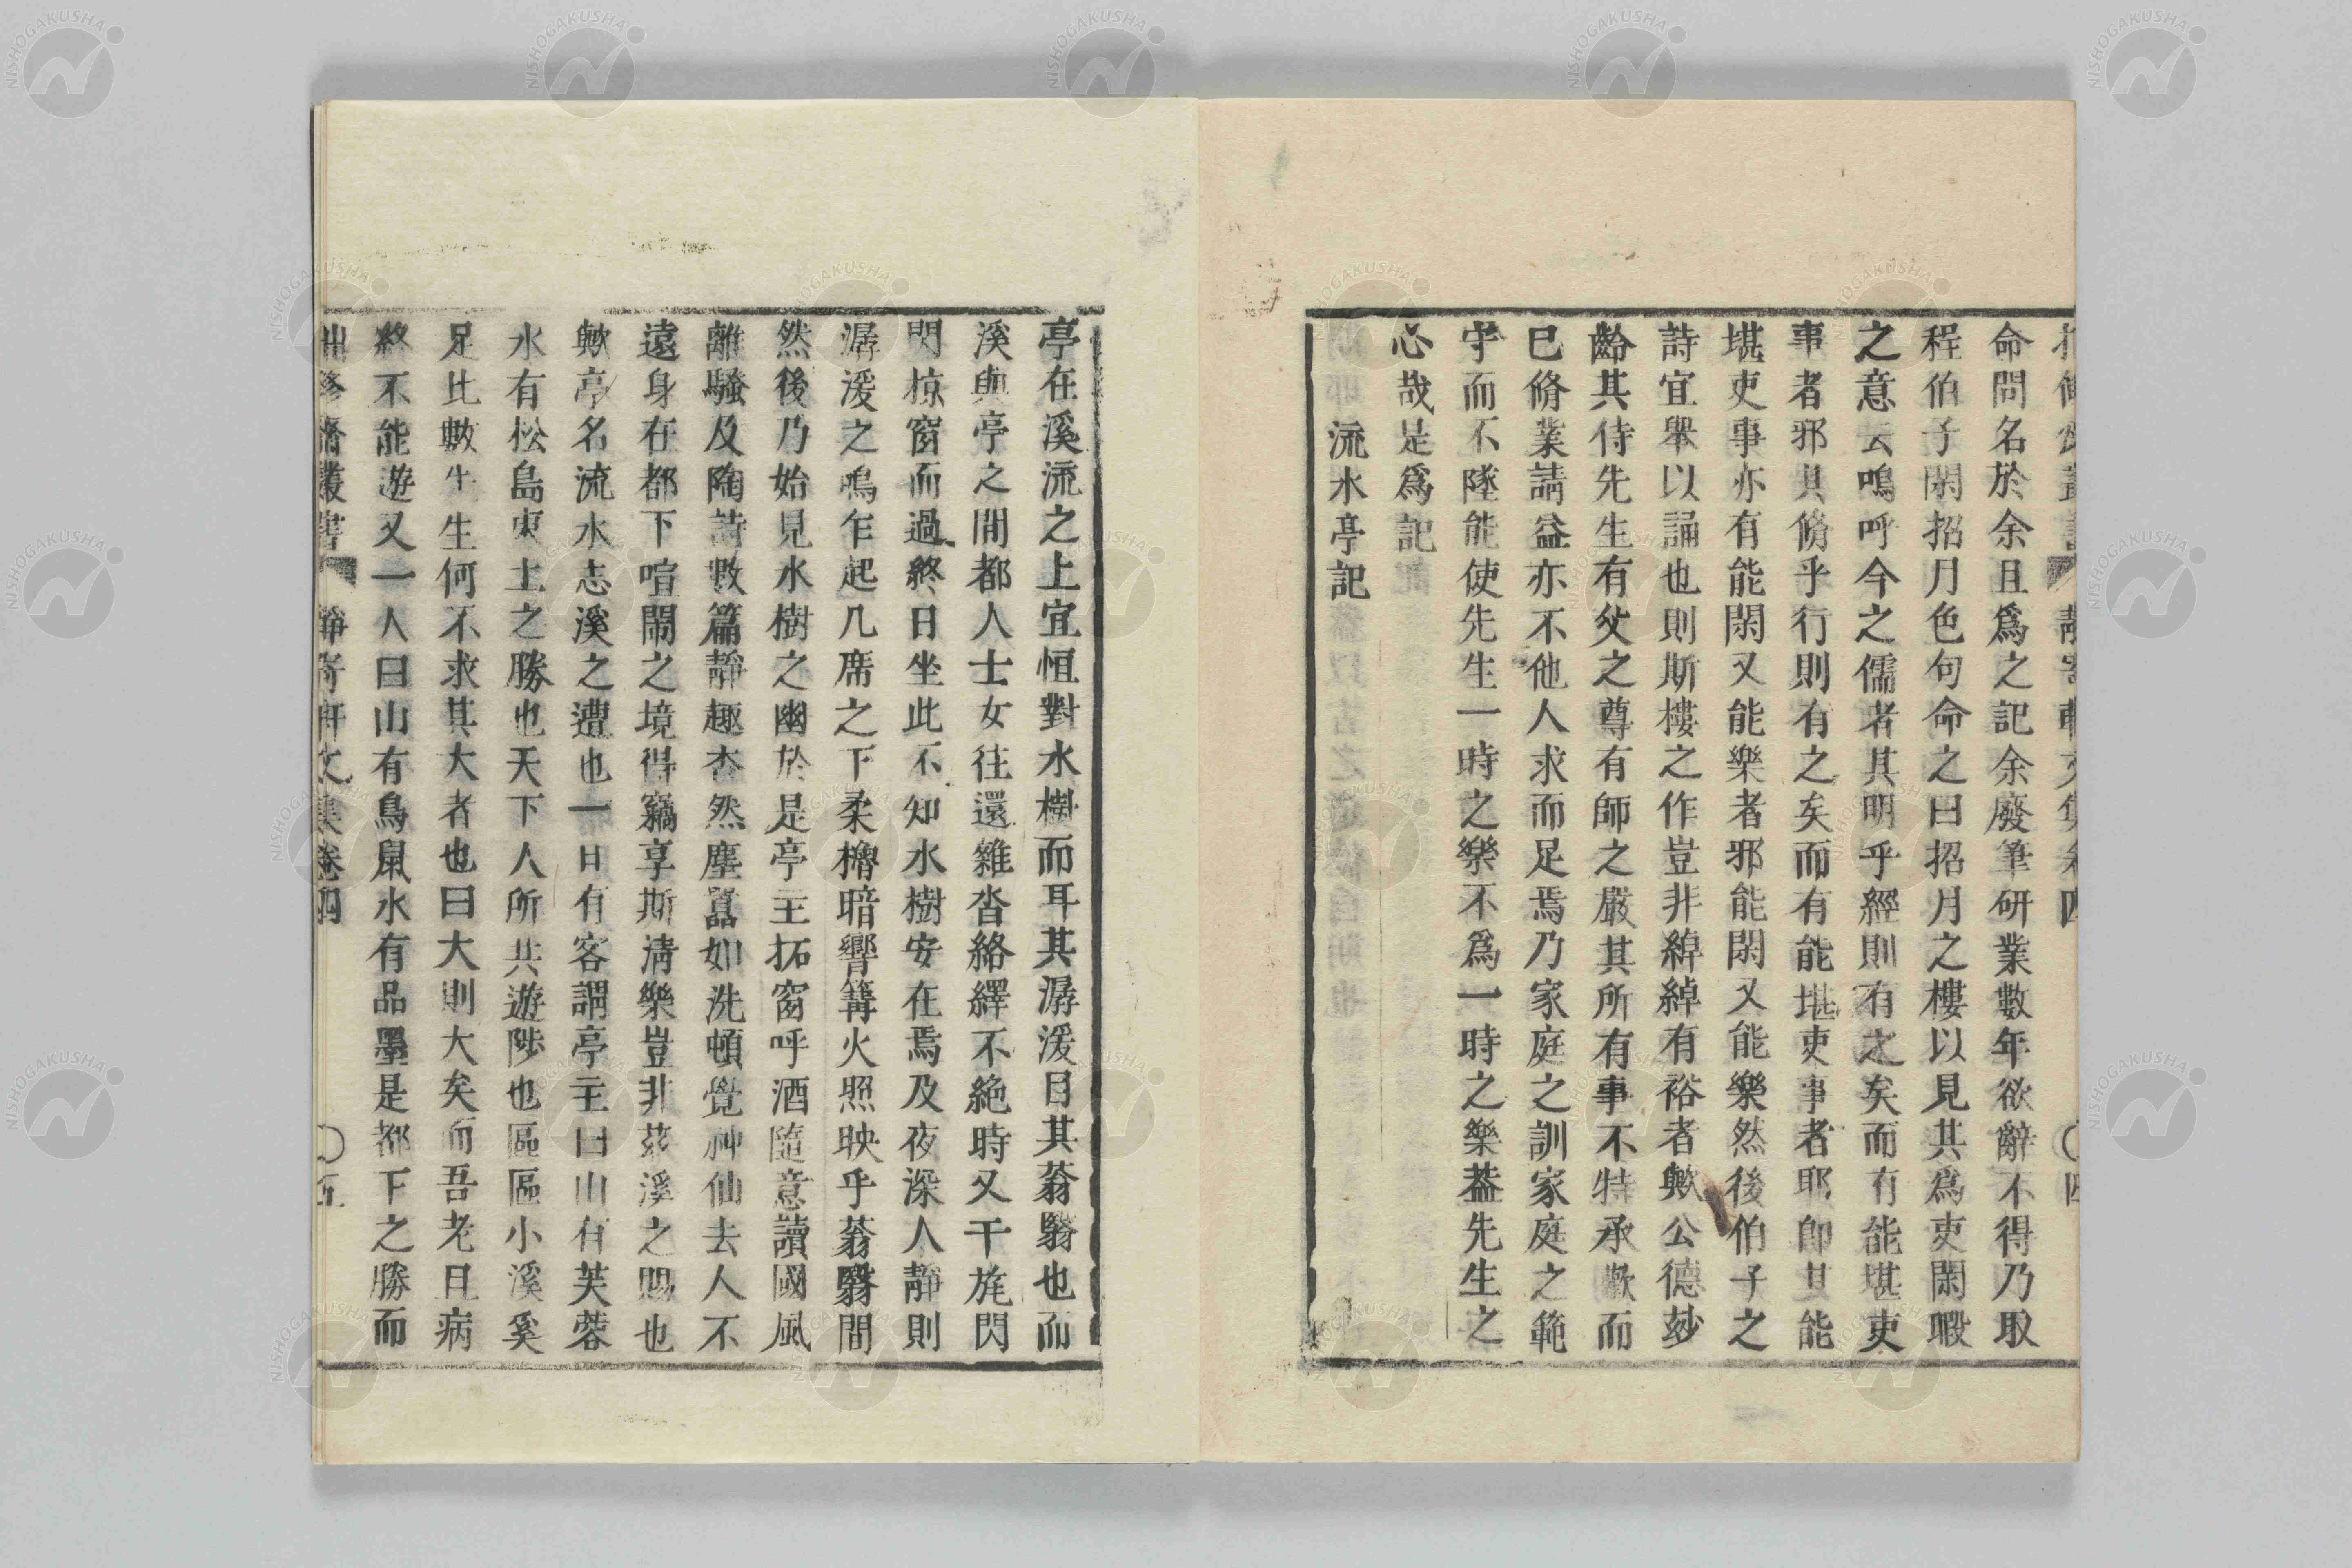 命問名於余且爲之記余廢筆研業數年欲辭不得乃取
程伯子閑招月色句命之曰招月之樓以見其爲吏閑暇
之意云嗚呼今之儒者其明乎經則有之矣而有能堪吏
事者邪其脩乎行則有之矣而有能堪吏事者耶卽其能
堪吏事亦有能閑又能樂者邪能閑又能樂然後伯子之
詩宜舉以誦也則斯樓之作豈非綽綽有裕者歟公德玅
齡其侍先生有父之尊有師之嚴其所有事不特承歡而
已脩業請益亦不他人求而足焉乃家庭之訓家庭之範
守而不墜能使先生一時之樂不爲一時之樂葢先生之
心哉是爲記
流水亭記
亭在溪流之上宜恒對水樹而耳其潺湲目其蓊翳也而
溪與亭之間都人士女往還雜沓絡繹不絶時又干旄閃
閃掠窗而過終日坐此不知水樹安在焉及夜深人靜則
潺湲之鳴乍起几席之下柔櫓暗響篝火照映乎蓊翳間
然後乃始見水樹之幽於是亭主拓窗呼酒隨意讀國風
離騷及陶詩數篇靜趣杳然塵囂如洗頓覺神仙去人不
遠身在都下喧鬧之境得竊享斯淸樂豈非茲溪之賜也
歟亭名流水志溪之遭也一日有客謂亭主曰山有芙蓉
水有松島東土之勝也天下人所共遊陟也區區小溪奚
足比數先生何不求其大者也曰大則大矣而吾老且病
終不能遊又一人曰山有鳥鼠水有品墨是都下之勝而
叢書 靜寄軒文集卷四 〇五